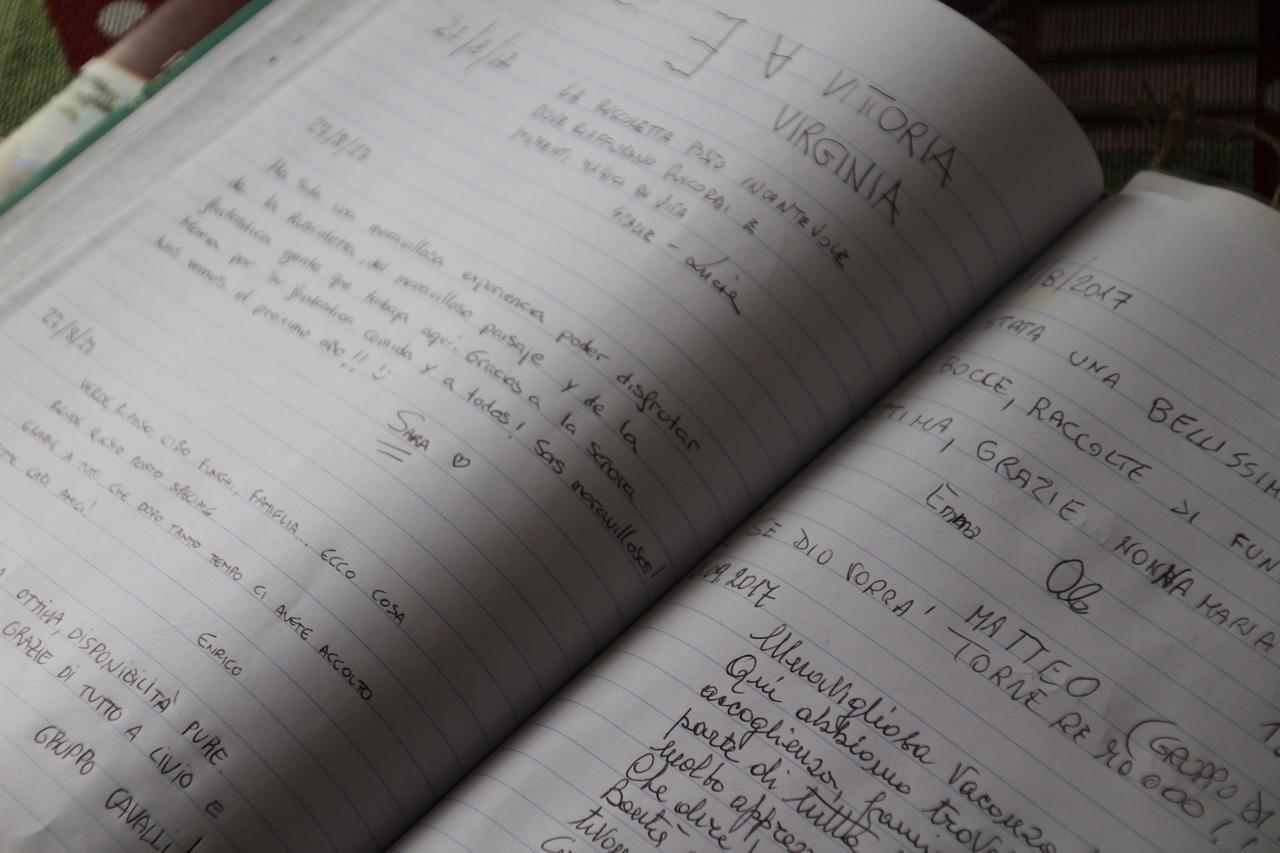 A VITTORIA
VIRGINIA
27/8/17
LA POSTO INCANTEVOLE
DOVE E
MOMENTI MAGICI DI VITA
GRAZIE - Lucia
27/8/17
Ha sido una maravillosa experiencia poder disfrutar
de la , del maravilloso paisaje y de la
fantastica gente que trabaja aquí. Gracias a la señora
Maria por su fantastica comida y a todos! Sois maravillosos!
Nos vemos el próximo año!! :)
SARA ♡
27/8/17
VERDE, RIPOSO, CIBO, FUNGHI, FAMIGLIA... ECCO COSA
RENDE QUESTO POSTO SPECIALE
GRAZIE A TUTTI CHE DOPO TANTO TEMPO CI AVETE ACCOLTO
COME CARI AMICI!
ENRICO
OTTIMA, DISPONIBILITA' PURE.
GRAZIE DI TUTTO A LIVIO E
GRUPPO
CAVALLI!
/8/2017
STATA UNA BELLISSIM
BOCCE, RACCOLTE DI FUN
STIMA, GRAZIE NONNA MARIA
Emma
SE DIO VORRA' TORNEREMOOOO!!
MATTEO (GRUPPO DI
.09.2017
Meravigliosa vacanza
Qui abbiamo trova
accoglienza, fami
parte di tutto
Molto appre
Che dire!